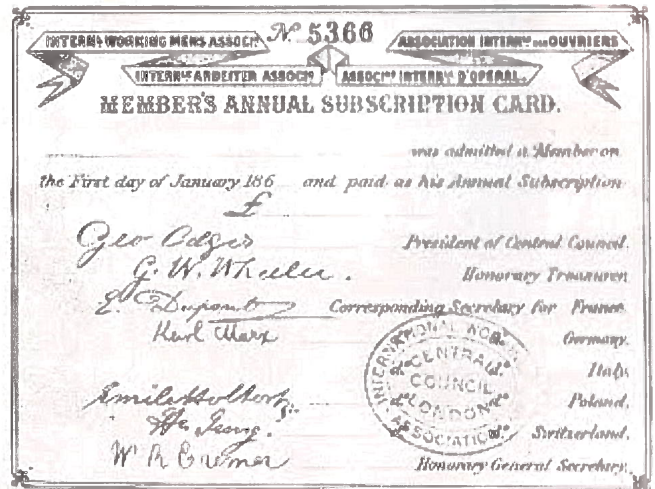 Nº 5366
INTERNL WORKING MENS ASSOCN
ASSOCIATION INTERNLE DES OUVRIERS
INTERNLE ARBEITER ASSOCN
ASSOCNE INTERNLE D'OPERAI.
MEMBER'S ANNUAL SUBSCRIPTION CARD.
was admitted a Member on
the First day of January 186 and paid as his Annual Subscription
£
Geo Odger President of Central Council.
G. W. Wheeler. Honorary Treasurer.
E. Dupont Corresponding Secretary for France.
Karl Marx do do Germany.
do do Italy.
Emile Holtorp do do Poland.
H. Jung. do do Switzerland.
W R Cremer Honorary General Secretary.
INTERNATIONAL WORKING ASSOCIATION
CENTRAL
COUNCIL
LONDON